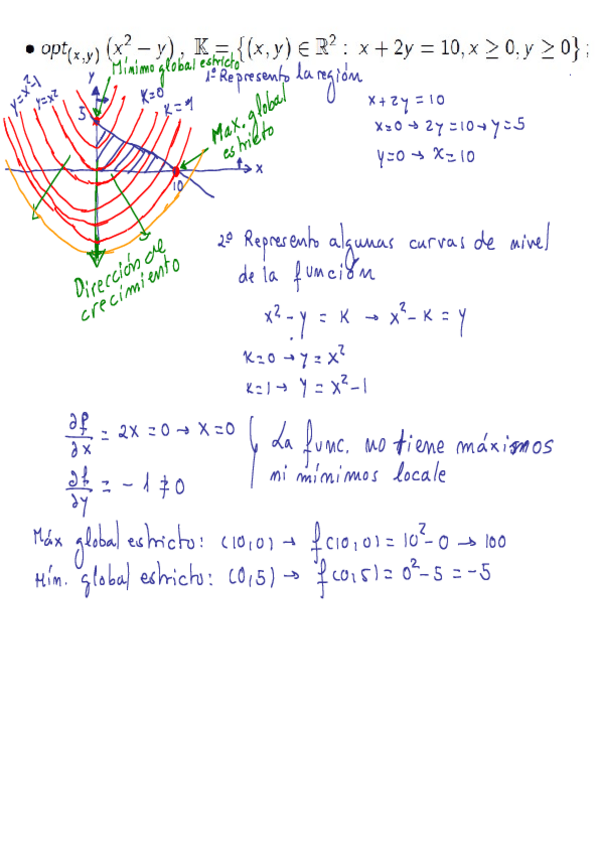 • opt(x,y) (x² − y) , 𝕂 = {(x, y) ∈ ℝ² : x + 2y = 10, x ≥ 0, y ≥ 0} ;
Mínimo global estricto
1º Represento la región
y=x²-1
y=x²
y
K=0
K=-1
5
Max. global
estricto
x
10
x+2y=10
x=0 → 2y=10 → y=5
y=0 → x=10
Dirección de
crecimiento
2º Represento algunas curvas de nivel
de la función
x²-y = K → x²-K = y
K=0 → y = x²
K=1 → y = x²-1
∂f/∂x = 2x = 0 → x=0
∂f/∂y = -1 ≠ 0
La func. no tiene máximos
ni mínimos locale
Máx global estricto: (10,0) → f(10,0) = 10²-0 → 100
Mín. global estricto: (0,5) → f(0,5) = 0²-5 = -5